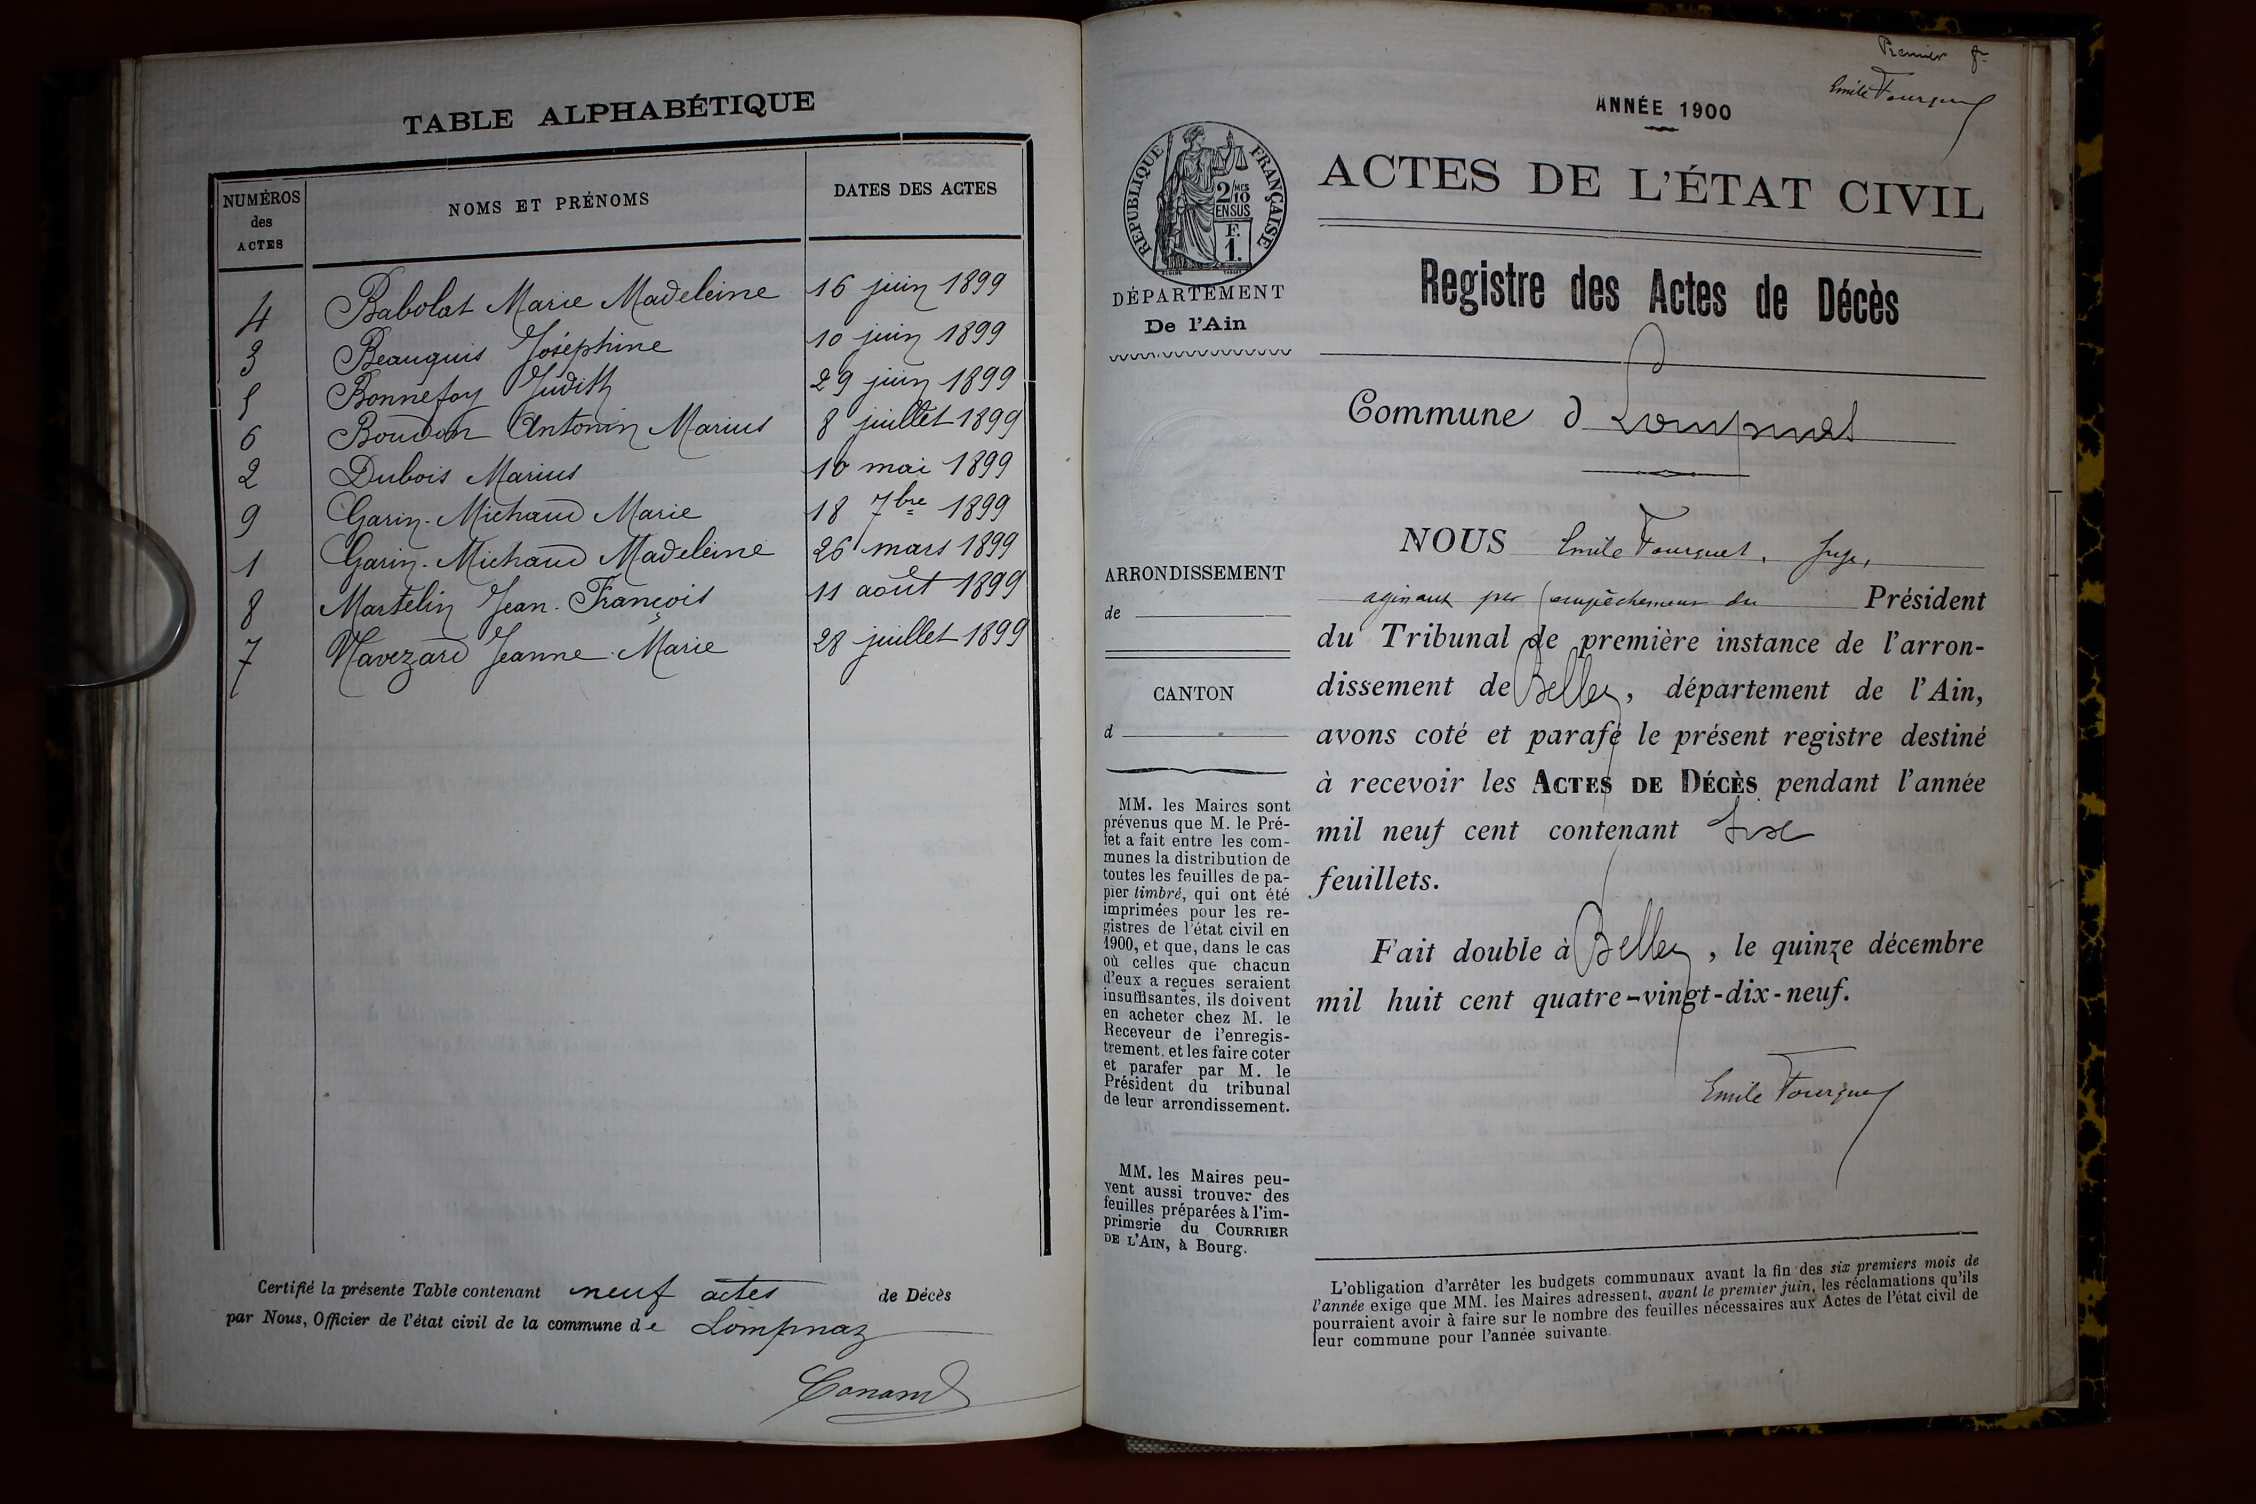 TABLE ALPHABÉTIQUE
NUMÉROS des ACTES NOMS ET PRÉNOMS DATES DES ACTES
4 Babolat Marie Madeleine 16 juin 1899
3 Beauquis Joséphine 10 juin 1899
5 Bonnefoy Judith 29 juin 1899
6 Boudon Antonin Marius 8 juillet 1899
2 Dubois Marius 10 mai 1899
9 Garin-Michaud Marie 18 7bre 1899
1 Garin-Michaud Madeleine 26 mars 1899
8 Martelin Jean-François 11 août 1899
7 Navezard Jeanne-Marie 28 juillet 1899
Certifié la présente Table contenant neuf actes de Décès
par Nous, Officier de l'état civil de la commune de Lompnaz
Conand
Premier fr
Emile Fourquet
ANNÉE 1900
ACTES DE L'ÉTAT CIVIL
RÉPUBLIQUE FRANÇAISE
2/10 MES
EN SUS
F.
1.
DÉPARTEMENT
De l'Ain
Registre des Actes de Décès
Commune d Lompnas
ARRONDISSEMENT
de
CANTON
d
MM. les Maires sont
prévenus que M. le Pré-
fet a fait entre les com-
munes la distribution de
toutes les feuilles de pa-
pier timbré, qui ont été
imprimées pour les re-
gistres de l'état civil en
1900, et que, dans le cas
où celles que chacun
d'eux a reçues seraient
insuffisantes, ils doivent
en acheter chez M. le
Receveur de l'enregis-
trement, et les faire coter
et parafer par M. le
Président du tribunal
de leur arrondissement.
MM. les Maires peu-
vent aussi trouver des
feuilles préparées à l'im-
primerie du COURRIER
DE L'AIN, à Bourg.
NOUS Emile Fourquet, Juge,
agissant par empêchement du Président
du Tribunal de première instance de l'arron-
dissement de Belley, département de l'Ain,
avons coté et parafé le présent registre destiné
à recevoir les ACTES DE DÉCÈS pendant l'année
mil neuf cent contenant six
feuillets.
Fait double à Belley, le quinze décembre
mil huit cent quatre-vingt-dix-neuf.
Emile Fourquet
L'obligation d'arrêter les budgets communaux avant la fin des six premiers mois de
l'année exige que MM. les Maires adressent, avant le premier juin, les réclamations qu'ils
pourraient avoir à faire sur le nombre des feuilles nécessaires aux Actes de l'état civil de
leur commune pour l'année suivante.